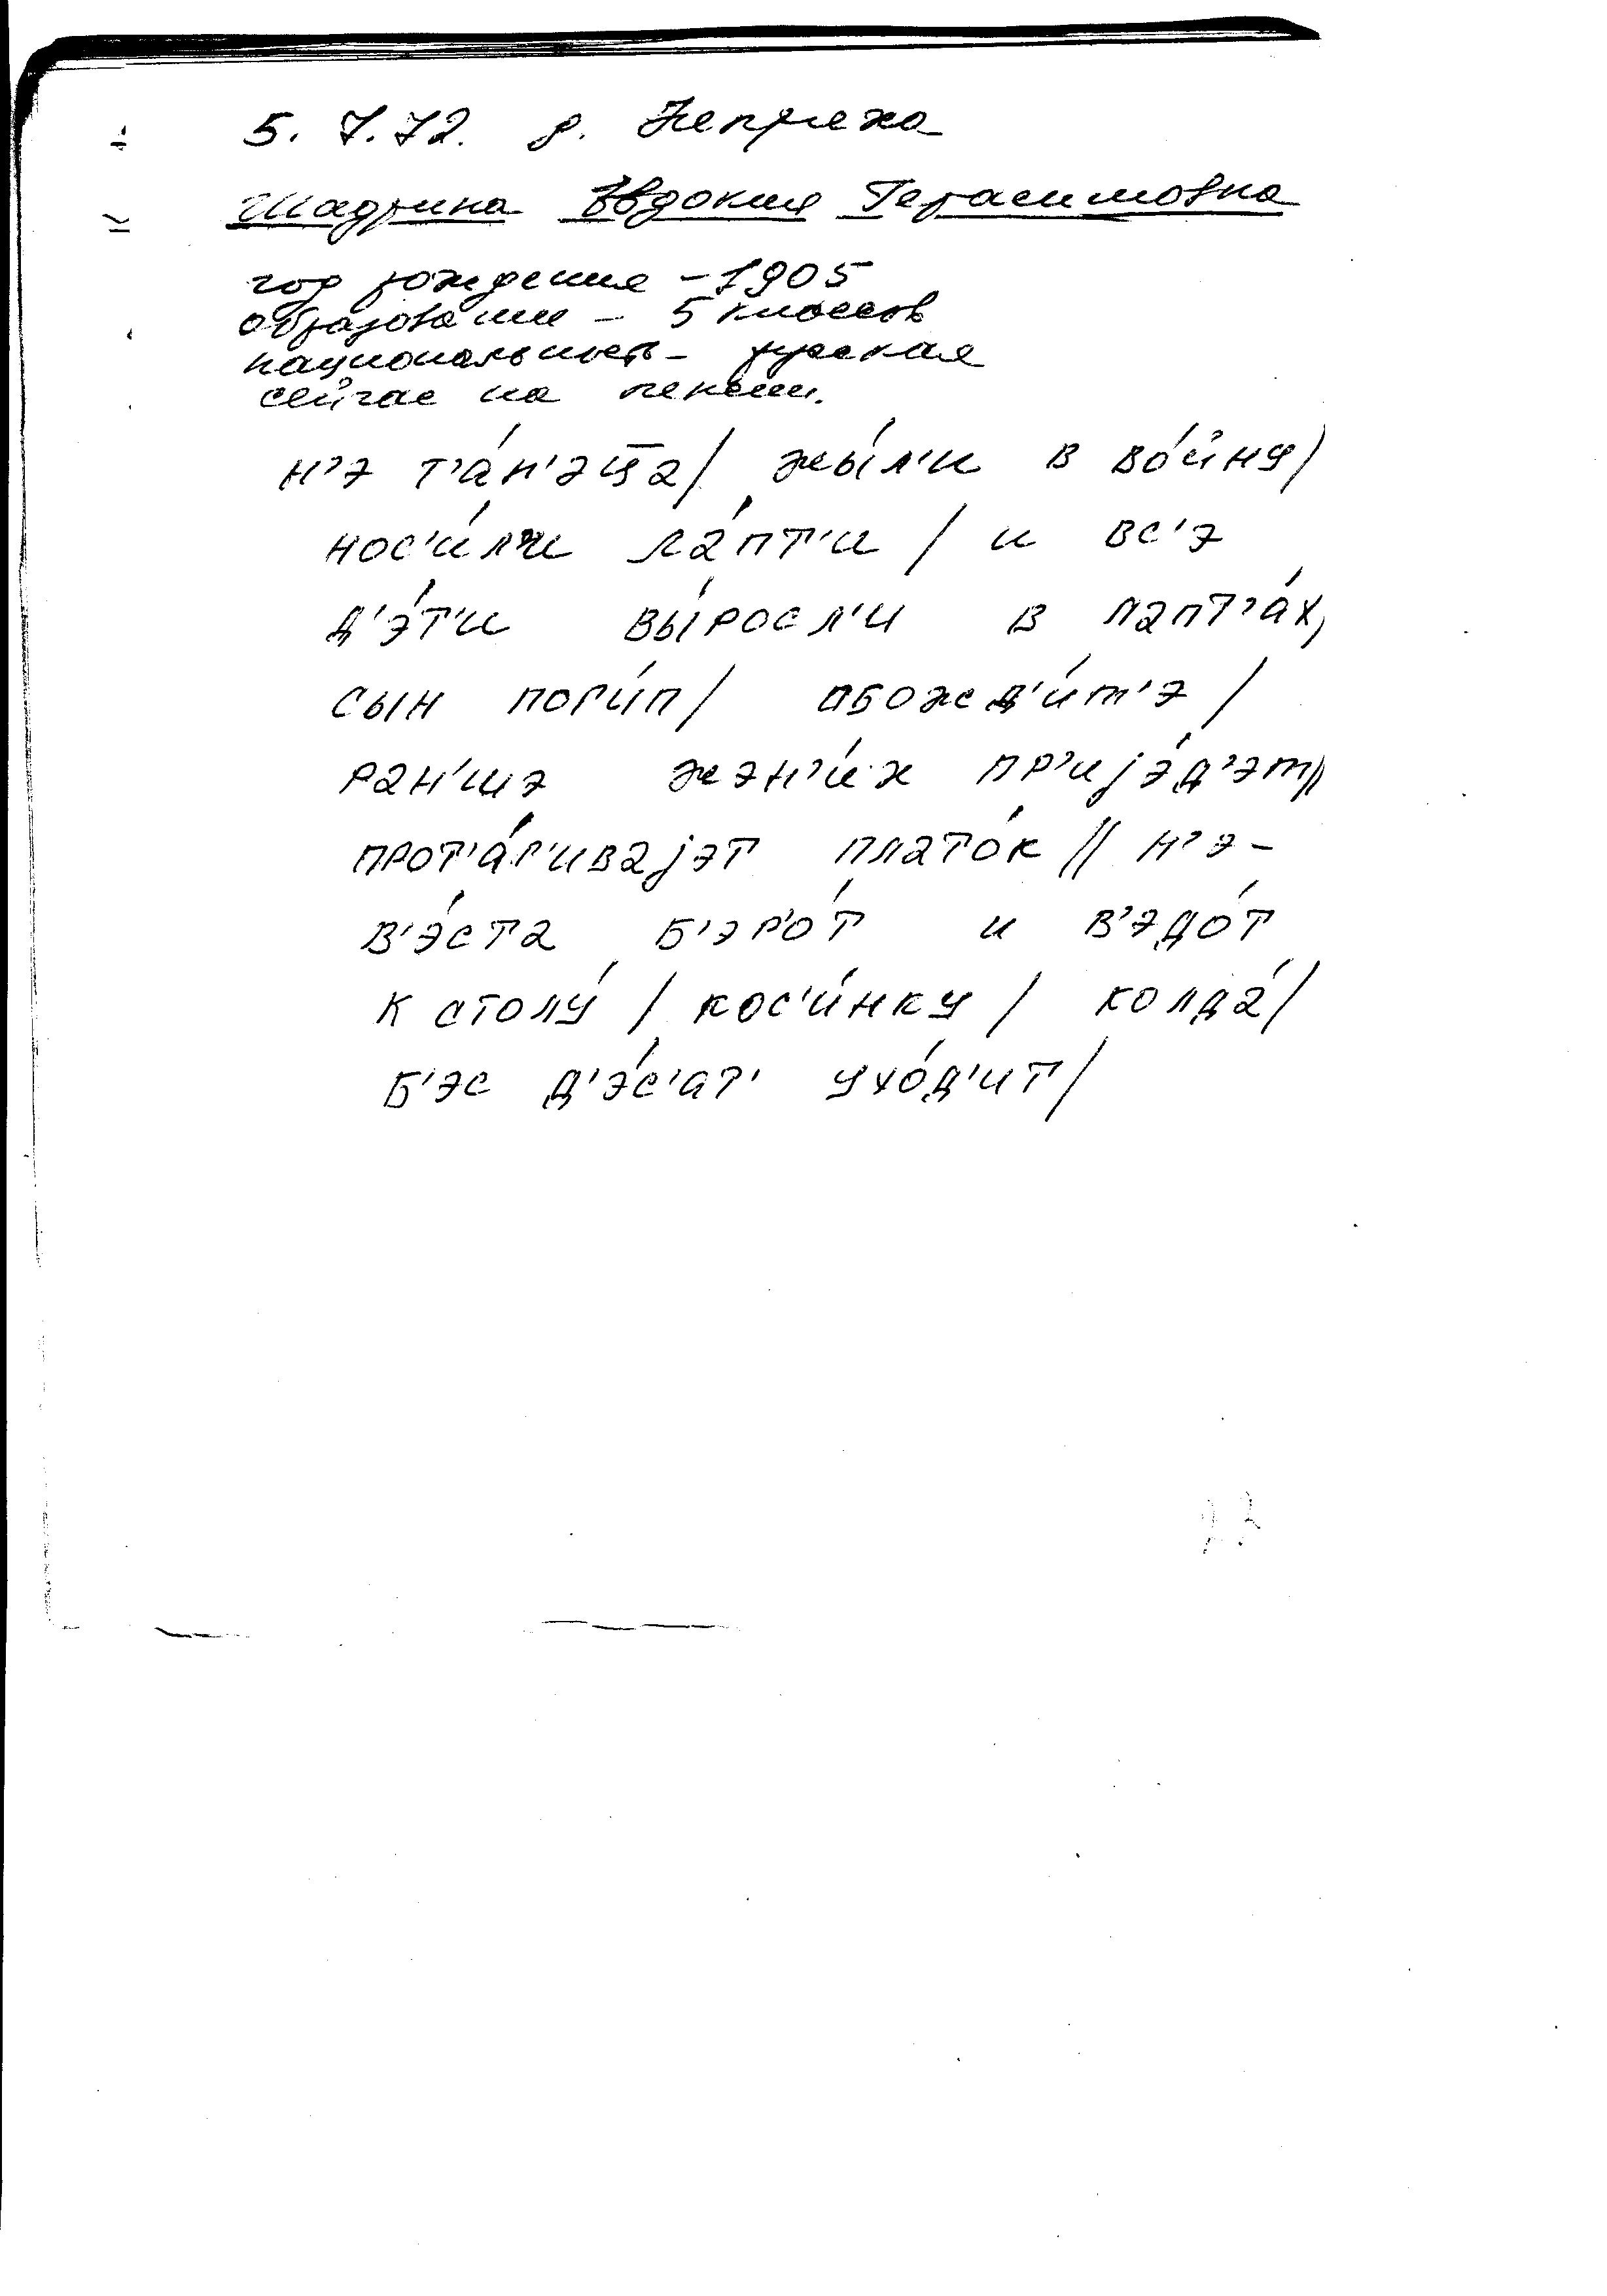 5. 7. 72. д. Непряха
Шадрина Евдокия Герасимовна
год рождения – 1905
образование – 5 классов
национальность – русская
сейчас на пенсии.
н'э т'а́н'эц̅а / жы́л'и в во́йну /
нос'и́л'и ла́пт'и / и вс'э
д'э́т'и вы́росл'и в лапт'а́х,
сын поги́п / обожд'и́т'э /
ран'шэ жэн'и́х пр'иjэ́д'эт //
прот'а́г'иваjэт плато́к // н'э-
в'э́ста б'эр'о́т и в'эдо́т
к столу́ / кос'и́нку / колда́ /
б'эс д'э́с'ат' ухо́д'ит /